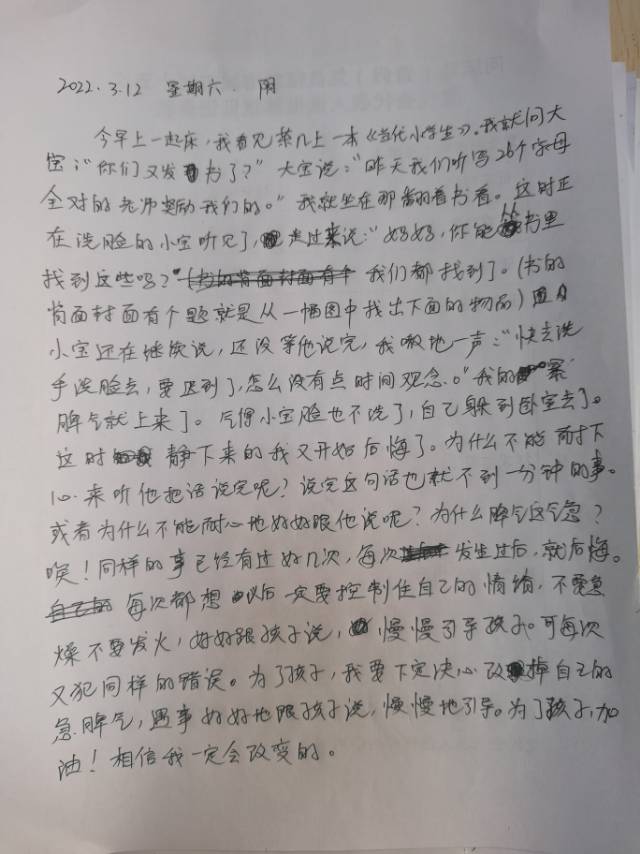 2022.3.12 星期六 阴
今早上一起床,我看见茶几上一本《当代小学生》。我就问大
宝:“你们又发书了?”大宝说:“昨天我们听写26个字母
全对的老师奖励我们的。”我就坐在那翻着书看。这时正
在洗脸的小宝听见了,走过来说:“妈妈,你能从书里
找到这些吗?”我们都找到了。(书的
背面封面有个题就是从一幅图中找出下面的物品)
小宝还在继续说,还没等他说完,我嗷地一声:“快去洗
手洗脸去,要迟到了,怎么没有点时间观念。”我的急
脾气就上来了。气得小宝脸也不洗了,自己躲到卧室去了。
这时静下来的我又开始后悔了。为什么不能耐下
心来听他把话说完呢?说完这句话也就不到一分钟的事。
或者为什么不能耐心地好好跟他说呢?为什么脾气这气急?
唉!同样的事已经有过好几次,每次发生过后,就后悔。
每次都想以后一定要控制住自己的情绪,不要急
燥不要发火,好好跟孩子说,慢慢引导孩子。可每次
又犯同样的错误。为了孩子,我要下定决心改掉自己的
急脾气,遇事好好地跟孩子说,慢慢地引导。为了孩子,加
油!相信我一定会改变的。